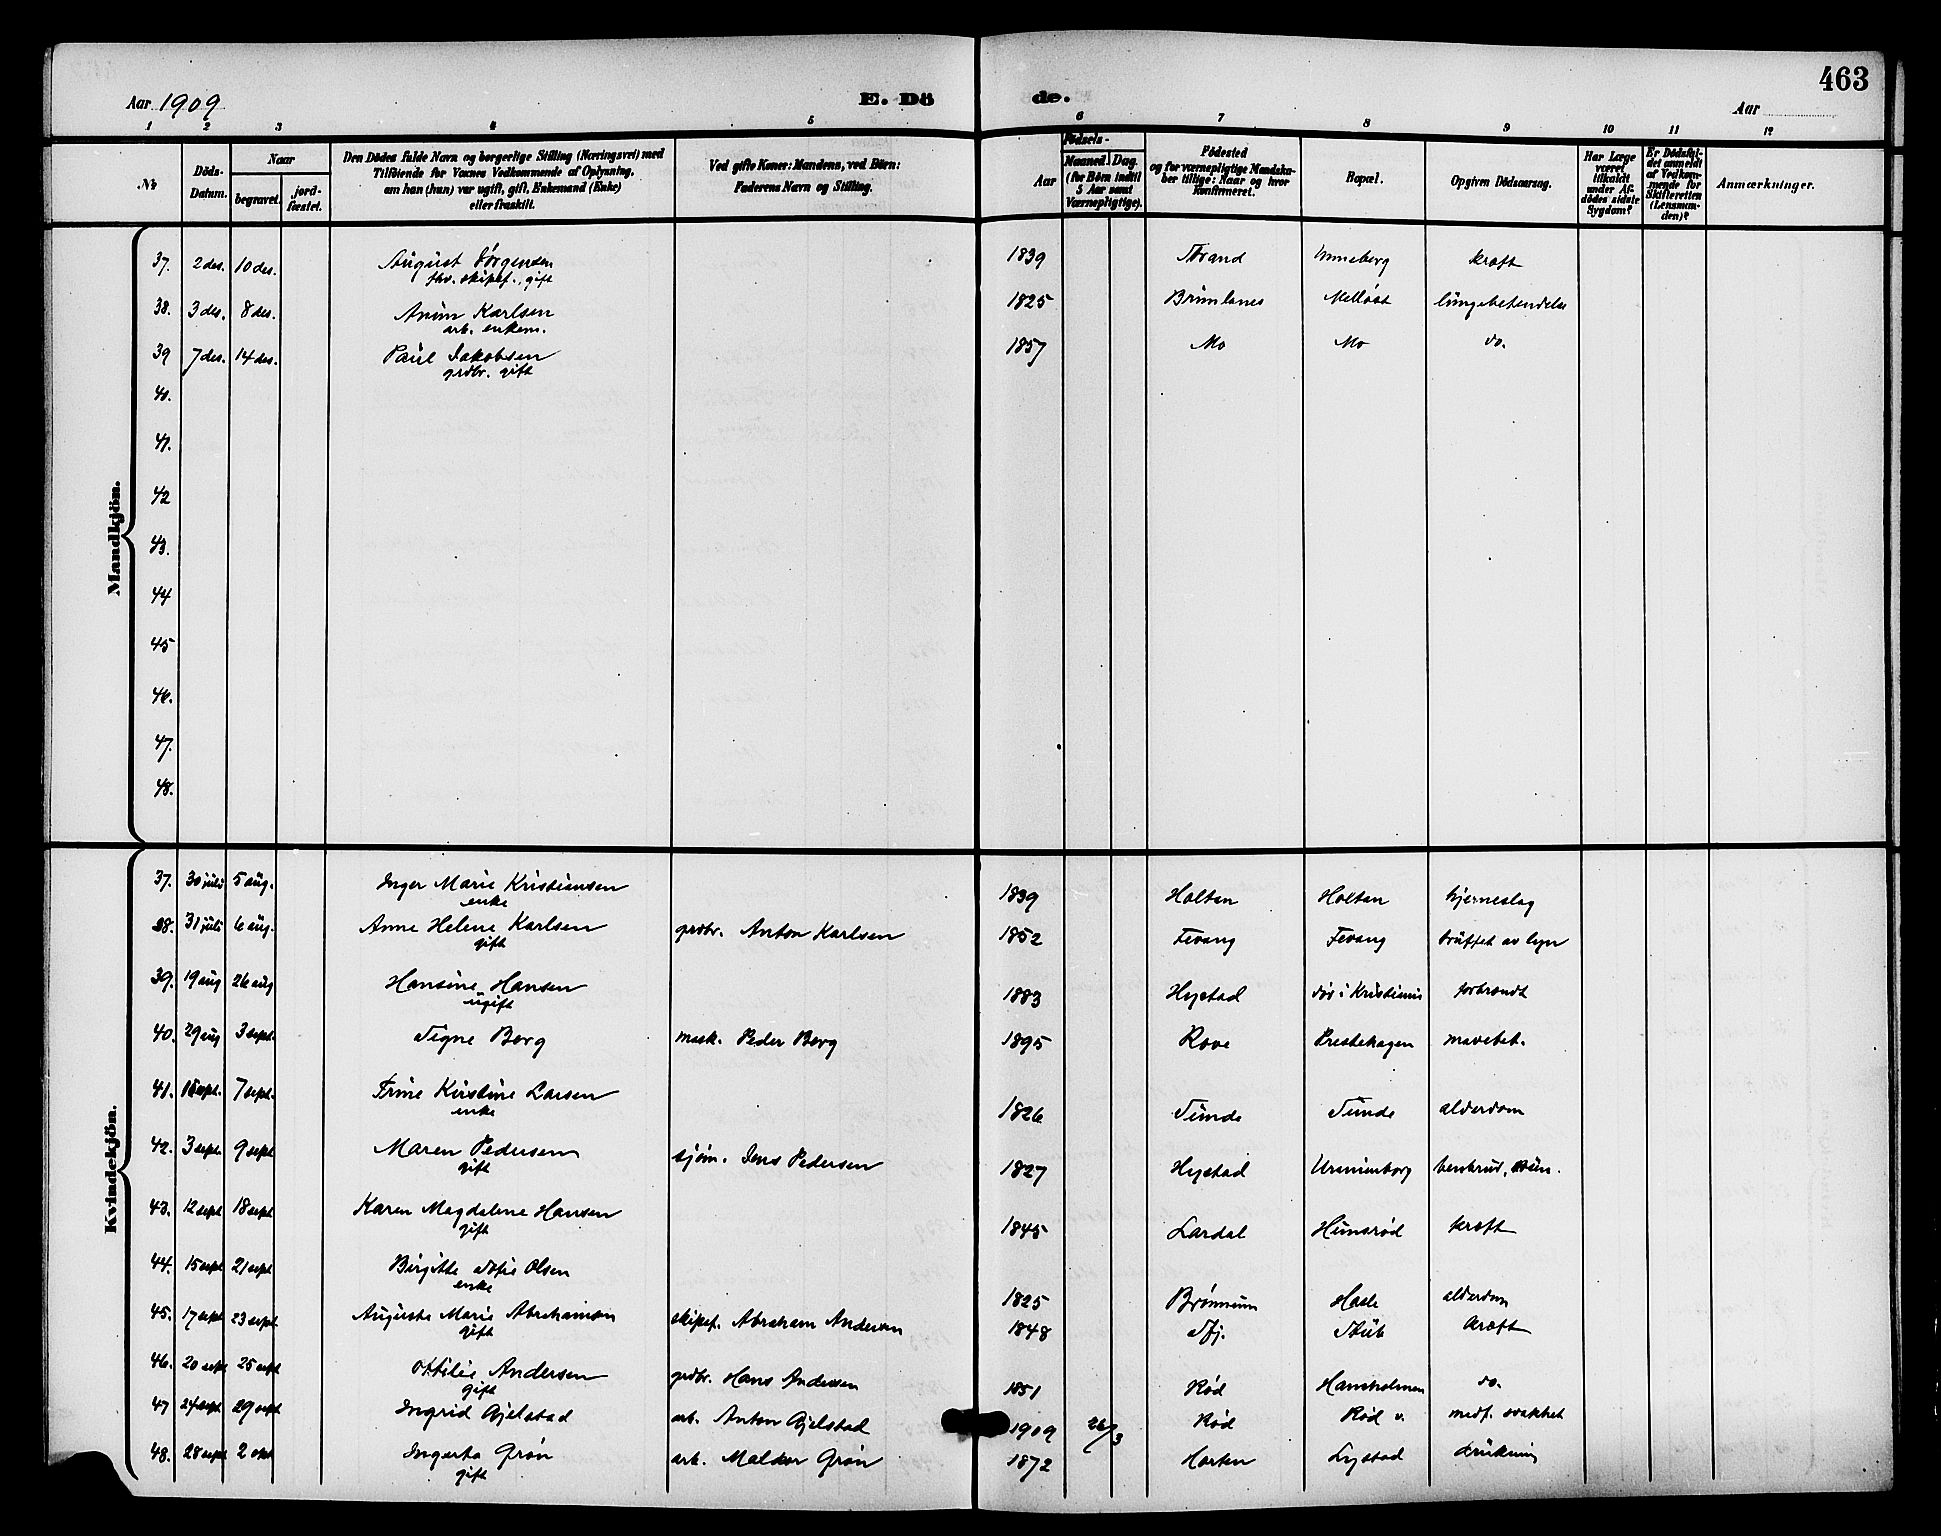 463
Aar 1909
E. Dö de.
Aar
1 2 3 4 5 6 7 8 9 10 11 12
№
Döds-Datum.
Naar
begravet.
jord-fæstet.
Den Dödes fulde Navn og borgerlige Stilling (Næringsvei) med Tilföiende for Voxnes Vedkommende af Oplysning, om han (hun) var ugift, gift, Enkemand (Enke) eller fraskilt.
Ved gifte Koner: Mandens, ved Börn: Faderens Navn og Stilling.
Födsels-
Aar
Maaned. Dag. (for Börn indtil 5 Aar samt Værnepligtige).
Födested og for værnepligtige Mandskaber tillige: Naar og hvor konfirmeret.
Bopæl.
Opgiven Dödsaarsag.
Har Læge været tilkaldt under Afdödes sidste Sygdom?
Er Dödsfaldet anmeldt af Vedkommende for Skifteretten (Lensmanden)?
Anmærkninger.
Mandkjön.
37. 2 des. 10 des. August Jörgensen 1839 Strand Unneberg kræft
fhv. skipsf., gift
38. 3 des. 8 des. Karlsen 1825 Brunlanes lungebetendelse
arb. enkem.
39 7 des. 14 des. Paul Jakobsen 1857 Mo Mo do.
grdbr. gift
40.
41.
42
43.
44
45
46.
47.
48.
Kvindekjön.
37. 30 juli 5 aug. Inger Marie Kristiansen 1839 Holtan Holtan hjerneslag
enke
38. 31 juli 6 aug. Anne Helene Karlsen grdbr. Anton Karlsen 1852 Fevang Fevang truffet av lyn
gift
39. 19 aug 26 aug Hansine Hansen 1883 Hystad död i Kristiania forbrændt
ugift
40. 29 aug 3 sept. Signe Berg mask. Peder Berg 1895 Rove Prestehagen mavebet.
41. sept. 7 sept. Trine Kirstine Larsen 1826 Sunde Sunde alderdom
enke
42. 3 sept. 9 sept Maren Pedersen sjöm. Jens Pedersen 1827 Hystad benbrud,
gift
43. 12 sept 18 sept Karen Magdalene Hansen 1845 Lardal Himsrød kræft
gift
44. 15 sept 21 sept Birgitte Sofie Olsen 1825 Brönnum Hasle alderdom
enke
45. 17 sept 23 sept. Auguste Marie Abrahamsen skipsf. Abraham Andersen 1848 Sfj. Stub kræft
gift
46. 20 sept 25 sept Ottilie Andersen grdbr. Hans Andersen 1851 Rød Hansholmen do.
gift
47 24 sept 29 sept Ingrid Gjelstad arb. Anton Gjelstad 1909 26/3 Rød Rød v. medf. svakhet
48. 28 sept 2 okt Ingerta Grön arb. Melder Grön 1872 Horten Lystad drukning
gift